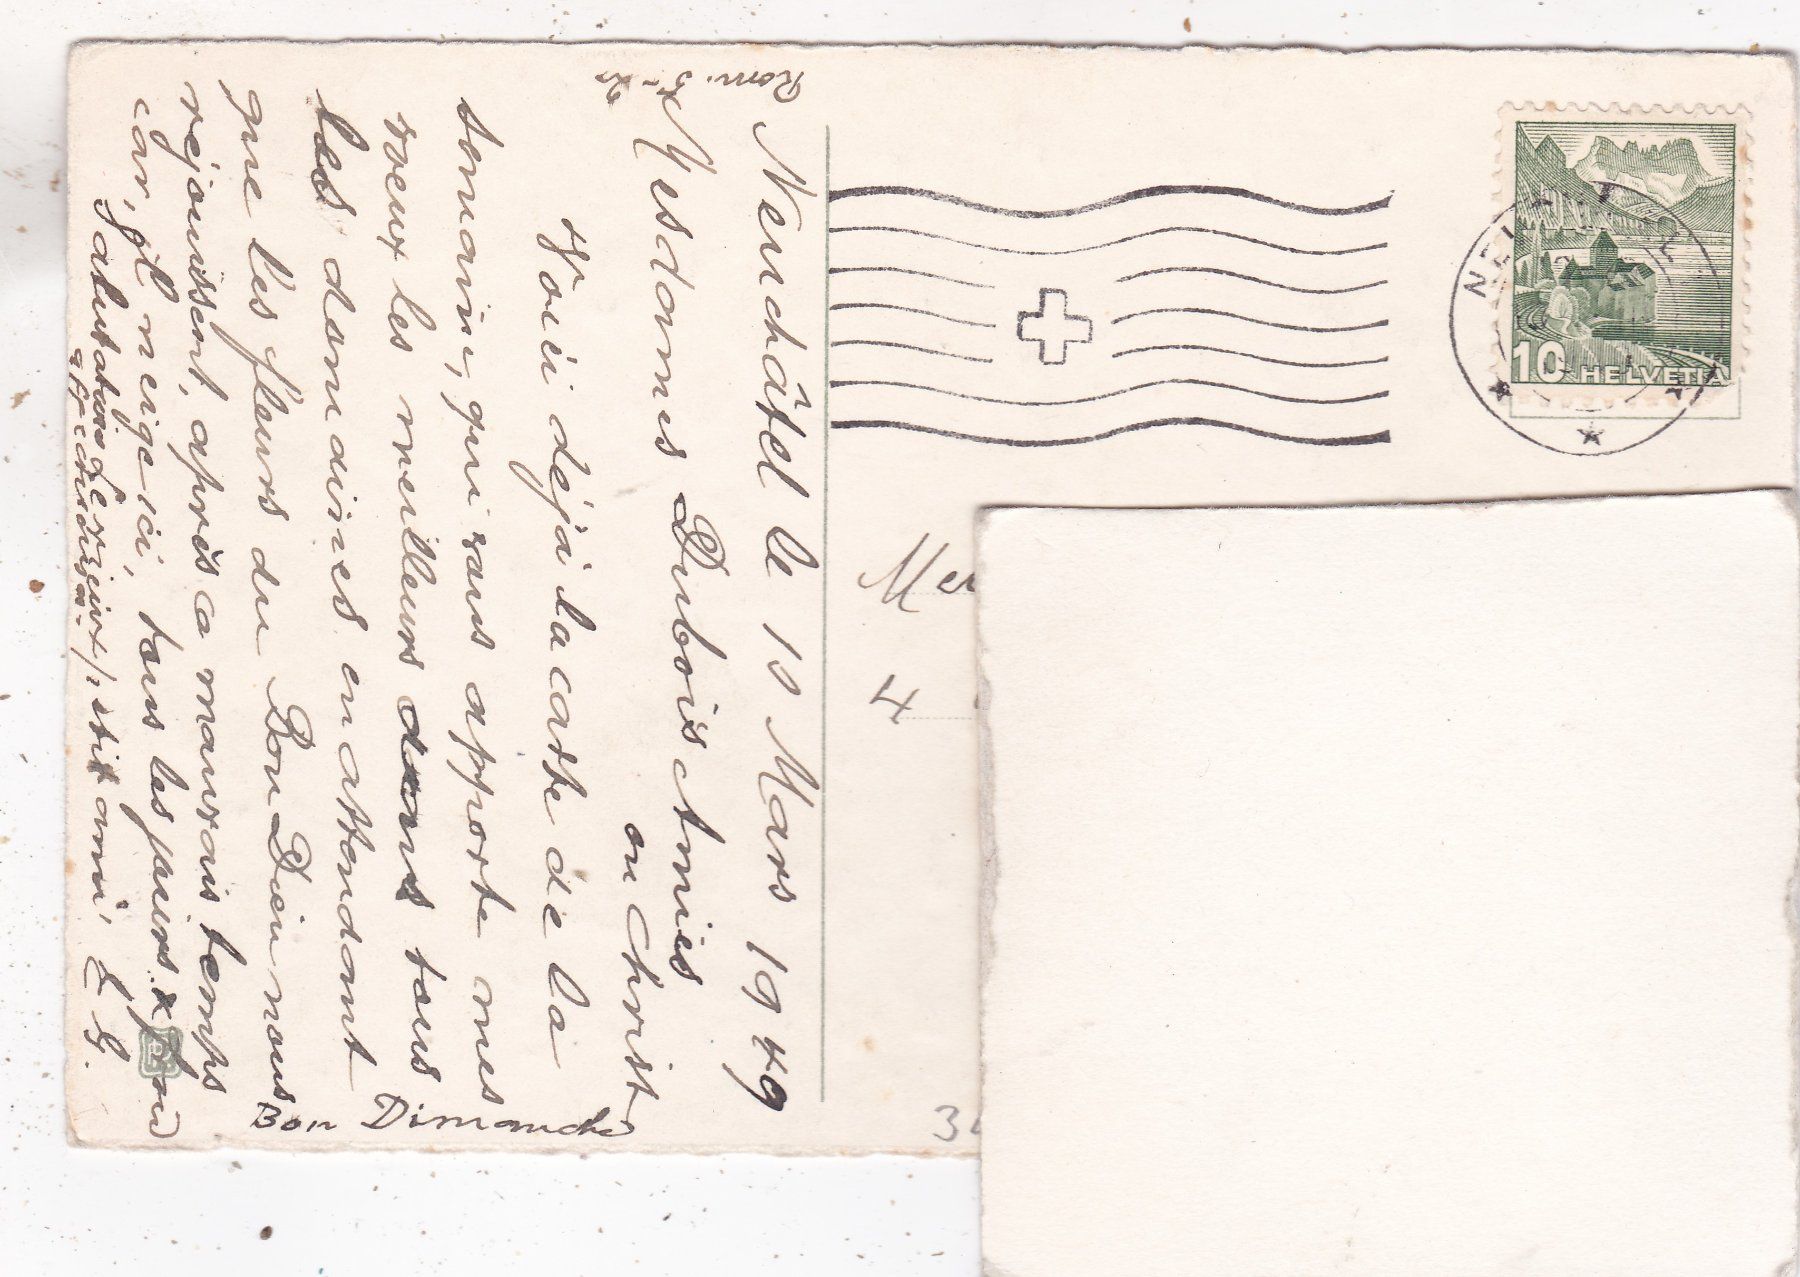 Rom. 5-
Neuchâtel le 10 Mars 1949
Mesdames Dubois Amies
en Christ
Voici déja la carte de la
semaine, qui vous apporte mes
voeux les meilleurs dans tous
les domaines en attendant
que les fleurs du Bon Dieu nous
rejouissent, après ce mauvais temps
car, il neige ici, tous les jours x froid
Salutations de
affectueuses. ami E G.
Bon Dimanche
4
10 HELVETIA